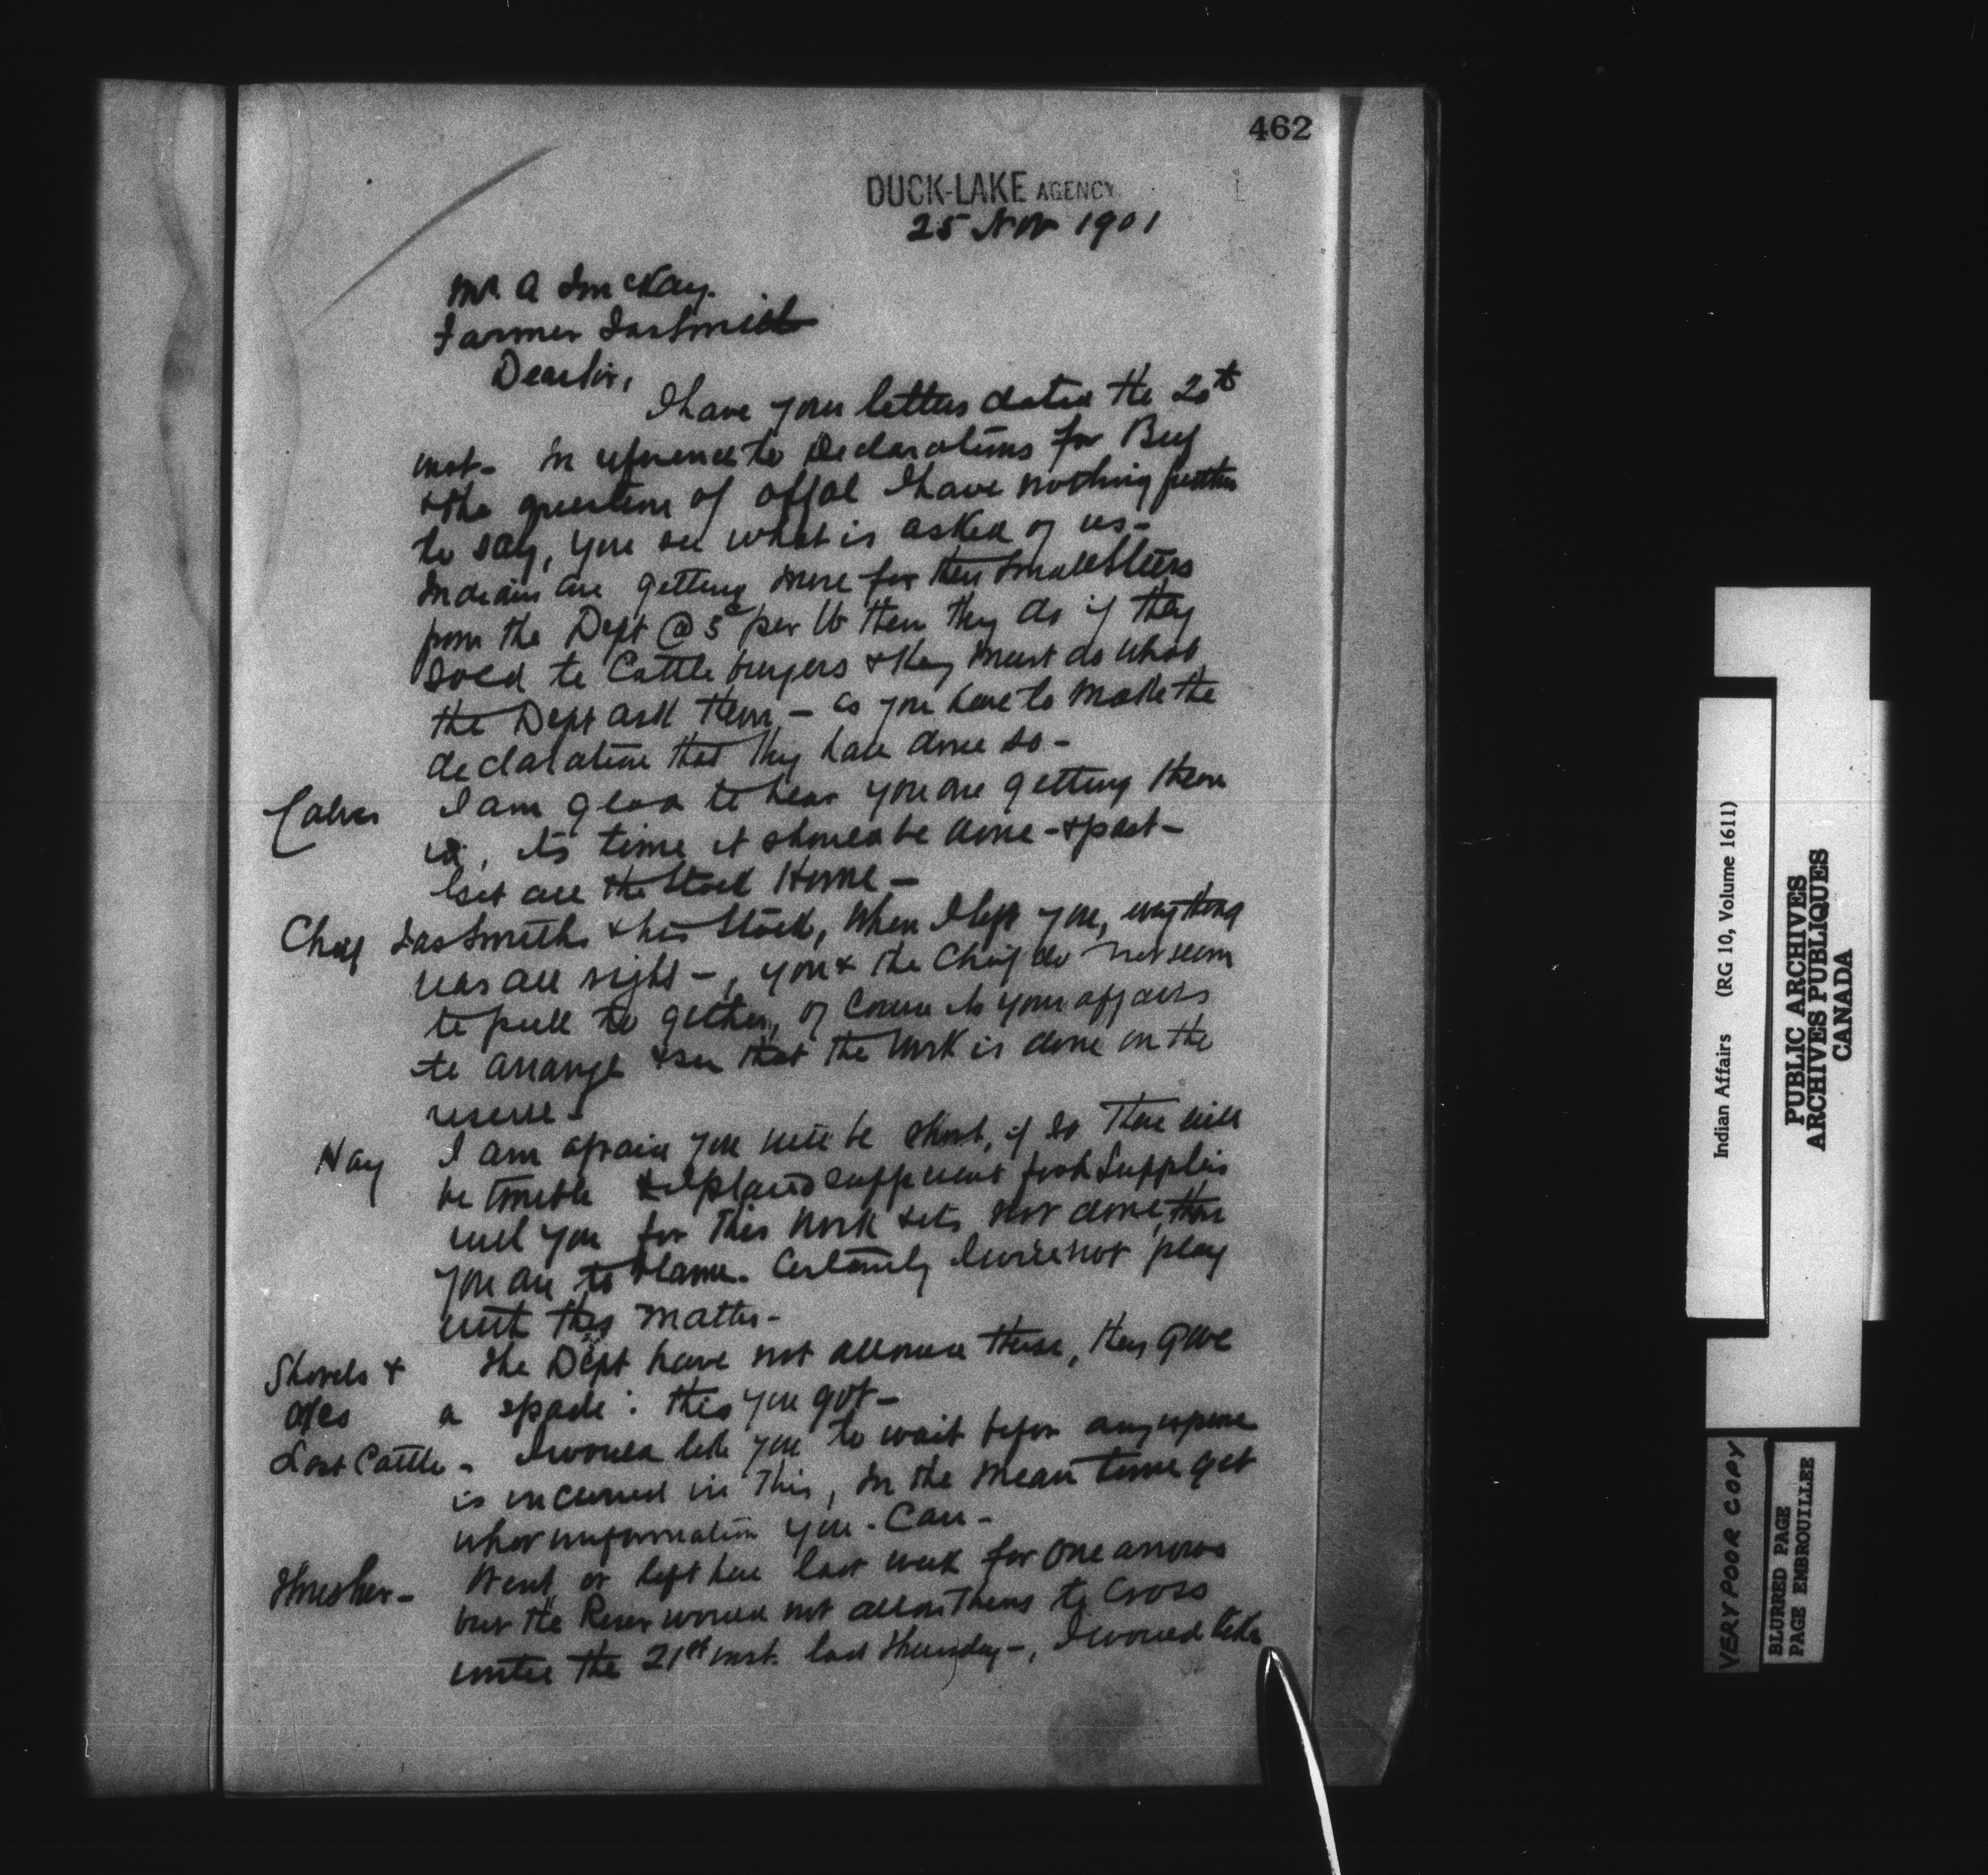 462
DUCK-LAKE AGENCY
25 Nov 1901
Mr. A J McKay.
Farmer Jas Smith
Dear Sir,
I have your letters dated the 20th
inst - In reference to Declarations for Beef
& the question of offal I have nothing further
to say, you see what is asked of us -
Indians are getting more for their small steers
from the Dept @ 5c per lb then they do if they
sold to Cattle buyers & they must do what
the Dept ask them - as you have to make the
declaration that they have done so -
Calves I am glad to hear you are getting them
in, its time it should be done - & past -
Get all the Stock Home -
Chief Jas Smith & his Stock, When I left you, everything
was all right -, you & the Chief do not seem
to pull to gether, of course its your affairs
to arrange & see that the work is done on the
reserve -
Hay I am afraid you will be short, if so there will
be trouble & I placed sufficient food supplies
with you for this work & its not done, then
you are to blame. Certainly I will not play
with this matter -
Shovels & The Dept have not allowed these, they gave
axes a spade : this you got -
Lost Cattle - I would like you to wait before any expense
is incurred in this, In the mean time get
what information you - Can -
Thresher - Went or left here last week for One arrows
but the River would not allow them to Cross
until the 21st inst. last Thursday -, I would like
Indian Affairs (RG 10, Volume 1611)
PUBLIC ARCHIVES
ARCHIVES PUBLIQUES
CANADA
VERY POOR COPY
BLURRED PAGE
PAGE EMBROUILLEE